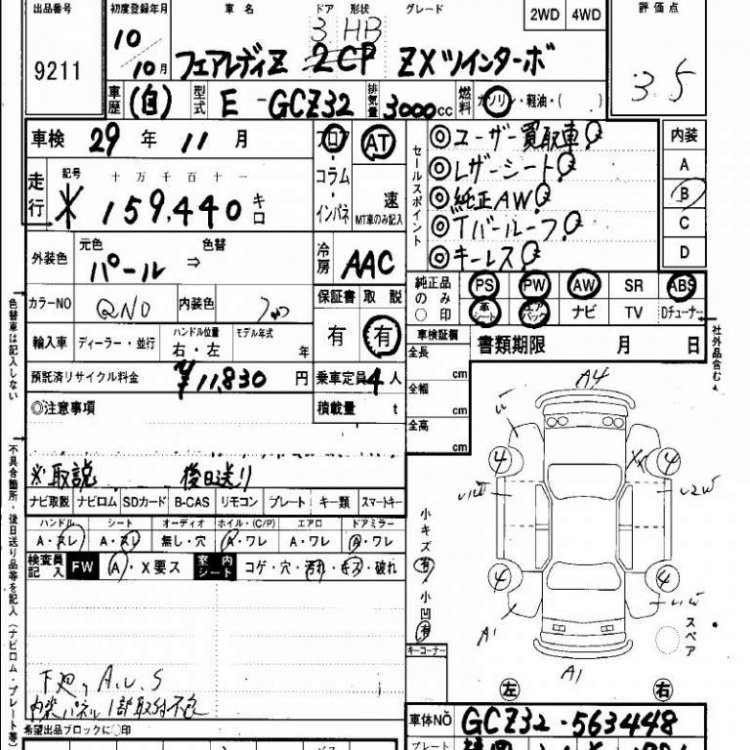 出品番号 初度登録年月 車名 ドア 形状 グレード 2WD 4WD 評価点
9211 10年 10月 フェアレディZ 3HB 2CP ZXツインターボ 3.5
車歴 (自) 型式 E-GCZ32 排気量 3000cc 燃料 ガソリン・軽油・( )
車検 29年 11月 フロア・コラム・インパネ AT 速 MT車のみ記入
走行 記号 十万千百十一
* 159,440 キロ
セールスポイント
◎ユーザー買取車
◎レザーシート
◎純正AW
◎Tバールーフ
◎キーレス
内装
A
B
C
D
外装色 元色 パール ⇒ 色替
冷房 AAC
カラーNO QN0 内装色
保証書 取説
有 有
純正品のみ〇印 PS PW AW SR ABS
革シート エアバック ナビ TV Dチューナー
輸入車 ディーラー・並行 ハンドル位置 右・左 モデル年式 年
車検証欄 書類期限 月 日
全長 cm
全幅 cm
全高 cm
預託済リサイクル料金 ¥11,830円 乗車定員 4人
◎注意事項 積載量 t
※取説 後日送り
ナビ取説 ナビロム SDカード B-CAS リモコン プレート キー類 スマートキー
ハンドル シート オーディオ ホイル・(C/P) エアロ ドアミラー
A・スレ A・スレ 無し・穴 A・ワレ A・ワレ A・ワレ
検査員記入 FW A・X要ス 室内シート コゲ・穴・汚れ・キズ・破れ
下廻り A.U.S
内装パネル1部取付不良
希望出品ブロックに〇印
A4
4
4
4
4
A1
A1
小キズ 有
小凹 有
キーコーナー
スペア
左 右
車体NO GCZ32-563448
プレート
色替車は記入しない
不具合箇所・後日送り品等を記入(ナビロム・プレート等)
社外品含む